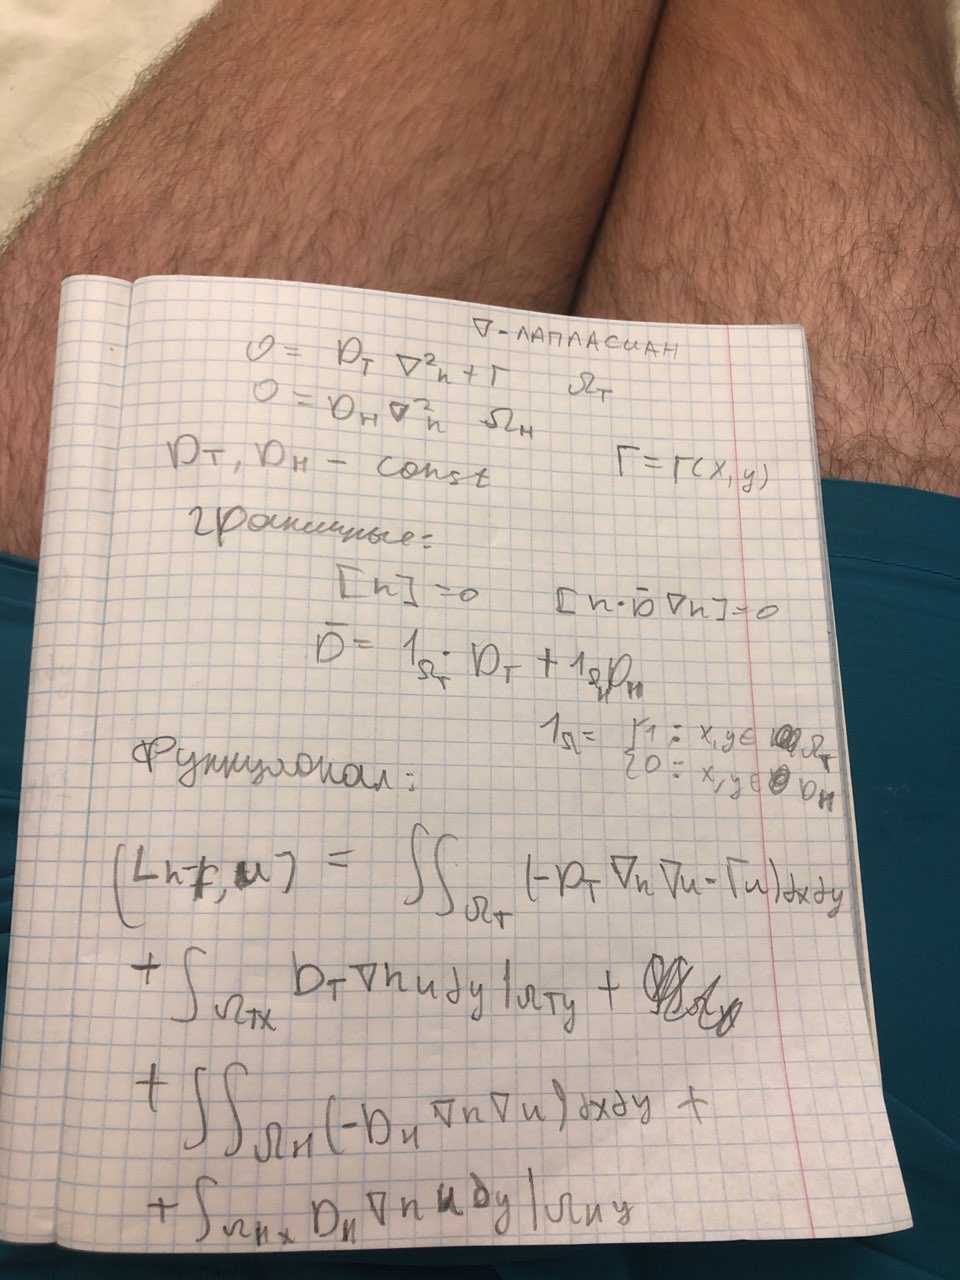 ∇ - ЛАПЛАСИАН
0 = D_T ∇²n + Γ Ω_T
0 = D_H ∇²n Ω_H
D_T, D_H - const Γ = Γ(x, y)
граничные:
[n] = 0 [n · D̄ ∇n] = 0
D̄ = 1_Ω_T · D_T + 1_Ω_H D_H
1_Ω = { 1 : x, y ∈ Ω_T
0 : x, y ∈ D_H
Функционал:
(Ln-f, u) = ∫∫_Ω_T (-D_T ∇n ∇u - Γu) dxdy
+ ∫_Ω_Tx D_T ∇n u dy |_Ω_Ty +
+ ∫∫_Ω_H (-D_H ∇n ∇u) dxdy +
+ ∫_Ω_Hx D_H ∇n u dy |_Ω_Hy